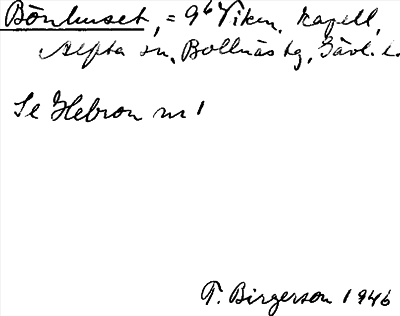 Bönhuset, = 9b Viken, kapell,
Alfta sn, Bollnäs tg, Gävl. l.
Se Hebron nr 1
T. Birgerson 1946